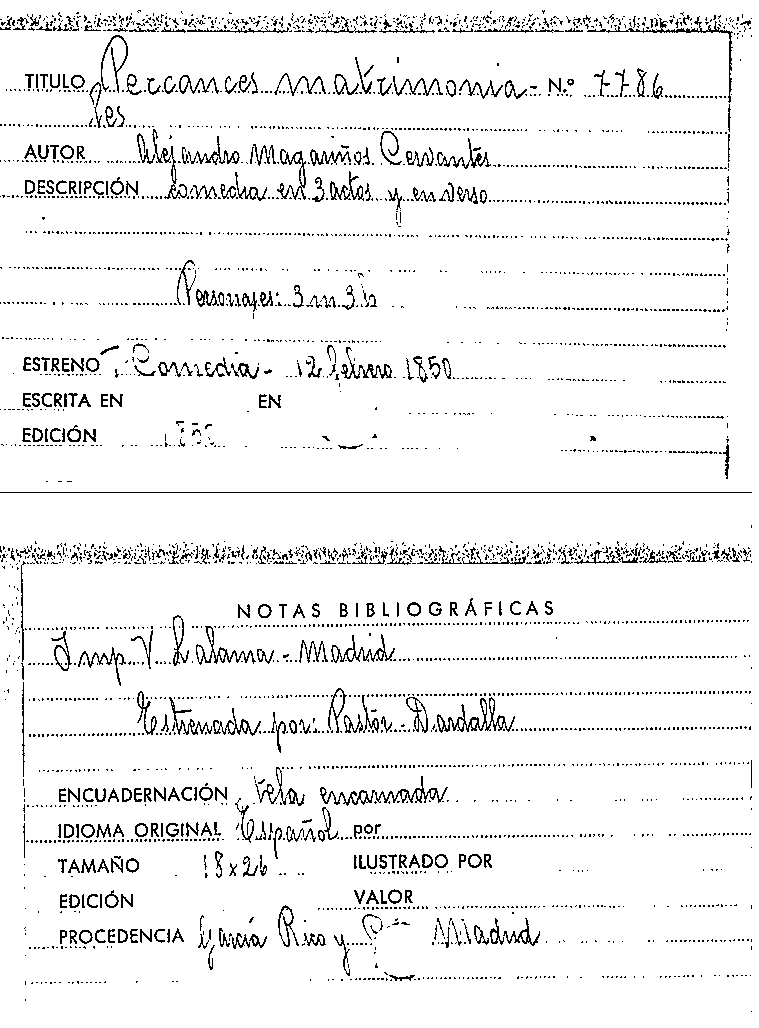 TITULO Percances matrimonia- N.º 7786
les
AUTOR Alejandro Magariños Cervantes
DESCRIPCIÓN comedia en 3 actos y en verso
Personajes: 3 m 3 h
ESTRENO T. Comedia - 12 febrero 1850
ESCRITA EN EN
EDICIÓN 1850
NOTAS BIBLIOGRÁFICAS
Imp V. Lalama - Madrid
Estrenada por: Pastor - Dardalla
ENCUADERNACIÓN tela encarnada
IDIOMA ORIGINAL Español por
TAMAÑO 18x26 ILUSTRADO POR
EDICIÓN VALOR
PROCEDENCIA García Rico y Madrid